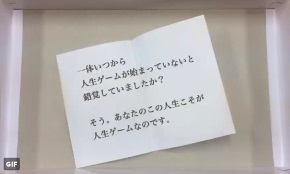 一体いつから
人生ゲームが始まっていないと
錯覚していましたか？
そう。あなたのこの人生こそが
人生ゲームなのです。
GIF